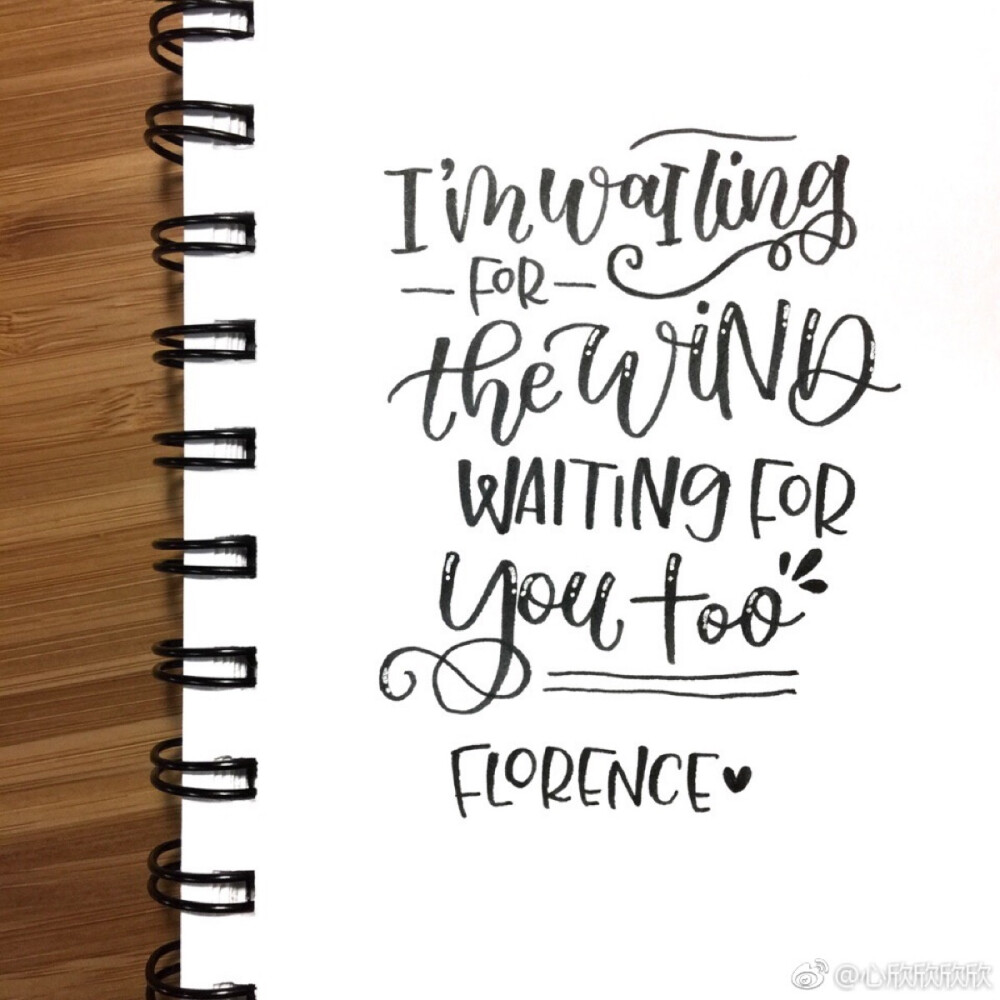 I'm waiting
- FOR -
the WiND
WAITING FOR
you too
FLORENCE
@心欣欣欣欣